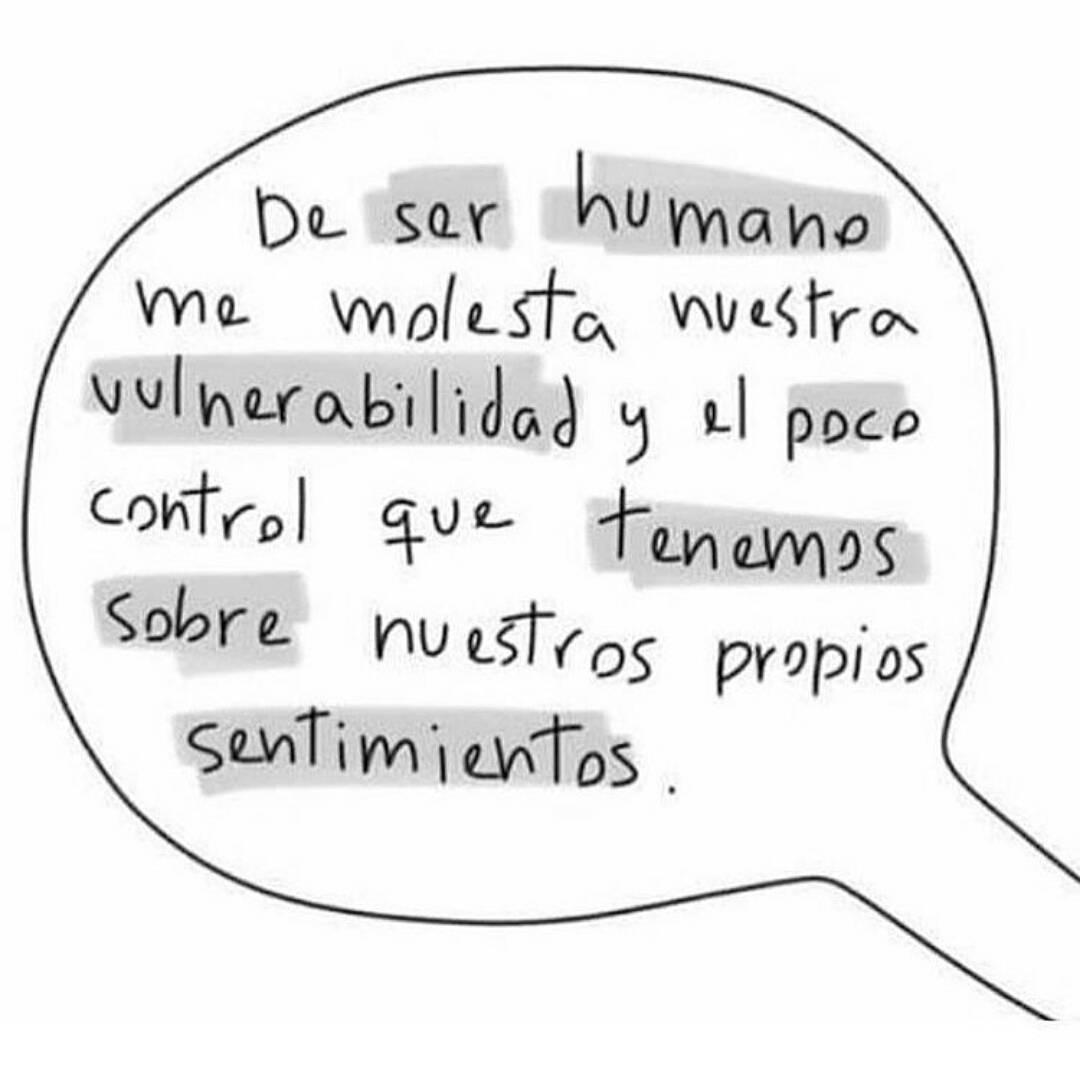 De ser humano
me molesta nuestra
vulnerabilidad y el poco
control que tenemos
sobre nuestros propios
sentimientos.